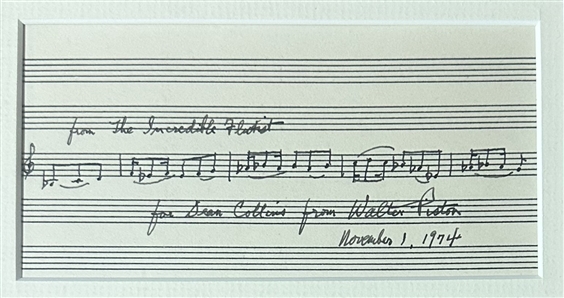 from The Incredible Flutist
for Dean Collins from Walter Piston
November 1, 1974